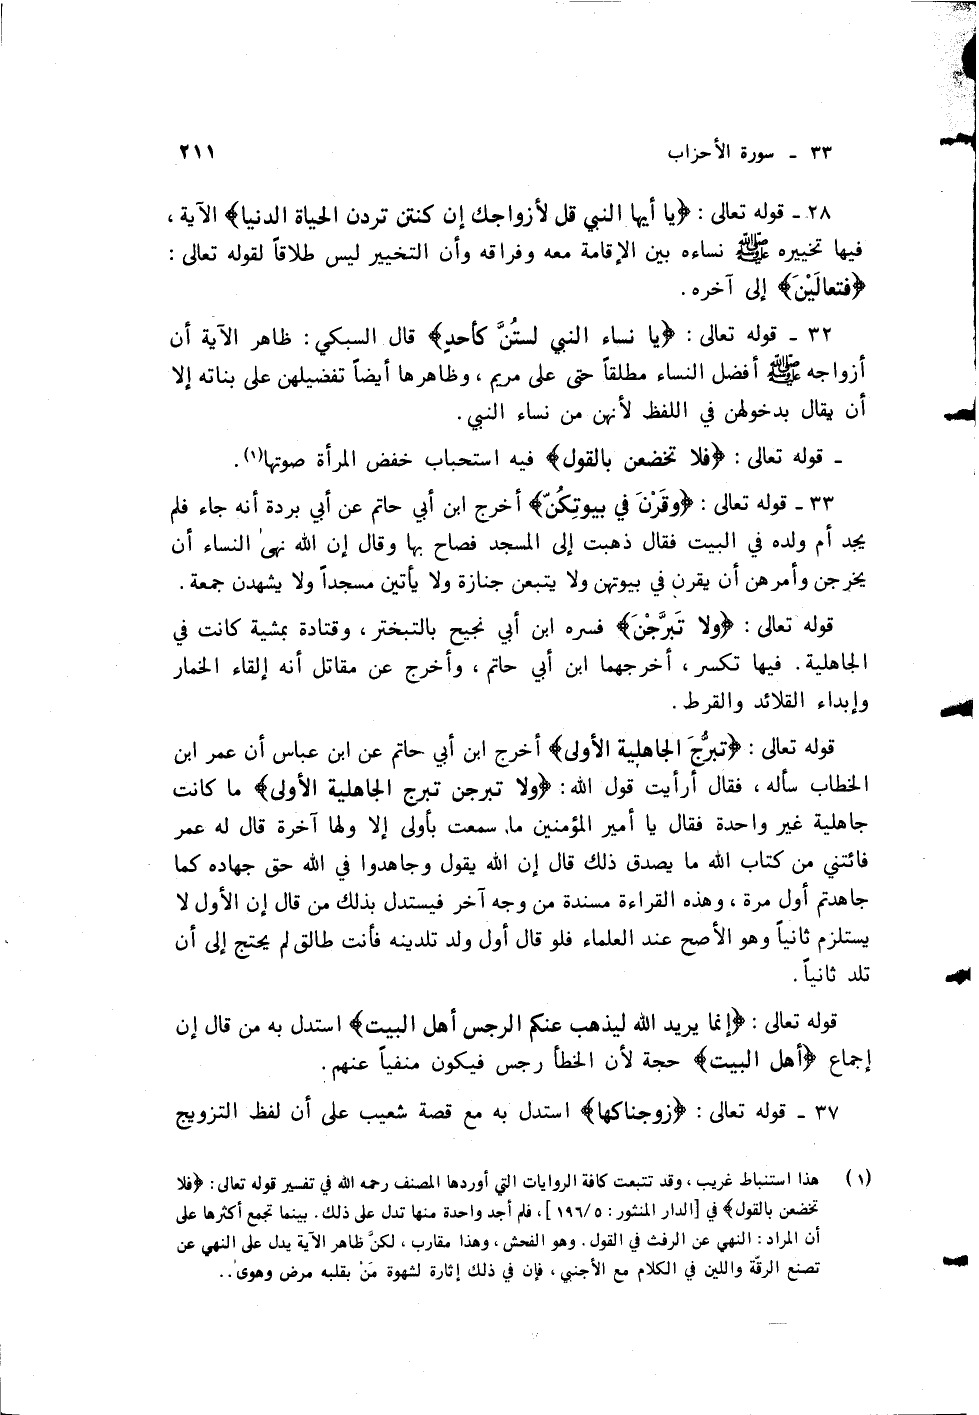 ٣٣ ـ سورة الأحزاب ٢١١
٢٨ ـ قوله تعالى : ﴿يا أيها النبي قل لأزواجك إن كنتن تردن الحياة الدنيا﴾ الآية ،
فيها تخييره ﷺ نساءه بين الإقامة معه وفراقه وأن التخيير ليس طلاقاً لقوله تعالى :
﴿فتعالَيْنَ﴾ إلى آخره .
٣٢ ـ قوله تعالى : ﴿يا نساء النبي لستُنَّ كأحدٍ﴾ قال السبكي : ظاهر الآية أن
أزواجه ﷺ أفضل النساء مطلقاً حتى على مريم ، وظاهرها أيضاً تفضيلهن على بناته إلا
أن يقال بدخولهن في اللفظ لأنهن من نساء النبي .
ـ قوله تعالى : ﴿فلا تخضعن بالقول﴾ فيه استحباب خفض المرأة صوتها(١) .
٣٣ ـ قوله تعالى : ﴿وقَرْنَ في بيوتِكُنّ﴾ أخرج ابن أبي حاتم عن أبي بردة أنه جاء فلم
يجد أم ولده في البيت فقال ذهبت إلى المسجد فصاح بها وقال إن الله نهىٰ النساء أن
يخرجن وأمرهن أن يقرن في بيوتهن ولا يتبعن جنازة ولا يأتين مسجداً ولا يشهدن جمعة .
قوله تعالى : ﴿ولا تَبرَّجْنَ﴾ فسره ابن أبي نجيح بالتبختر ، وقتادة بمشية كانت في
الجاهلية . فيها تكسر ، أخرجهما ابن أبي حاتم ، وأخرج عن مقاتل أنه إلقاء الخمار
وإبداء القلائد والقرط .
قوله تعالى : ﴿تبرُّجَ الجاهلية الأولى﴾ أخرج ابن أبي حاتم عن ابن عباس أن عمر ابن
الخطاب سأله ، فقال أرأيت قول الله : ﴿ولا تبرجن تبرج الجاهلية الأولى﴾ ما كانت
جاهلية غير واحدة فقال يا أمير المؤمنين ما سمعت بأولى إلا ولها آخرة قال له عمر
فائتني من كتاب الله ما يصدق ذلك قال إن الله يقول وجاهدوا في الله حق جهاده كما
جاهدتم أول مرة ، وهذه القراءة مسندة من وجه آخر فيستدل بذلك من قال إن الأول لا
يستلزم ثانياً وهو الأصح عند العلماء فلو قال أول ولد تلدينه فأنت طالق لم يحتج إلى أن
تلد ثانياً .
قوله تعالى : ﴿إنما يريد الله ليذهب عنكم الرجس أهل البيت﴾ استدل به من قال إن
إجماع ﴿أهل البيت﴾ حجة لأن الخطأ رجس فيكون منفياً عنهم .
٣٧ ـ قوله تعالى : ﴿زوجناكها﴾ استدل به مع قصة شعيب على أن لفظ التزويج
(١) هذا استنباط غريب ، وقد تتبعت كافة الروايات التي أوردها المصنف رحمه الله في تفسير قوله تعالى : ﴿فلا
تخضعن بالقول﴾ في [الدار المنثور : ١٩٦/٥] ، فلم أجد واحدة منها تدل على ذلك . بينما تجمع أكثرها على
أن المراد : النهي عن الرفث في القول . وهو الفحش ، وهذا مقارب ، لكنَّ ظاهر الآية يدل على النهي عن
تصنع الرقّة واللين في الكلام مع الأجنبي ، فإن في ذلك إثارة لشهوة مَنْ بقلبه مرض وهوىٰ . .